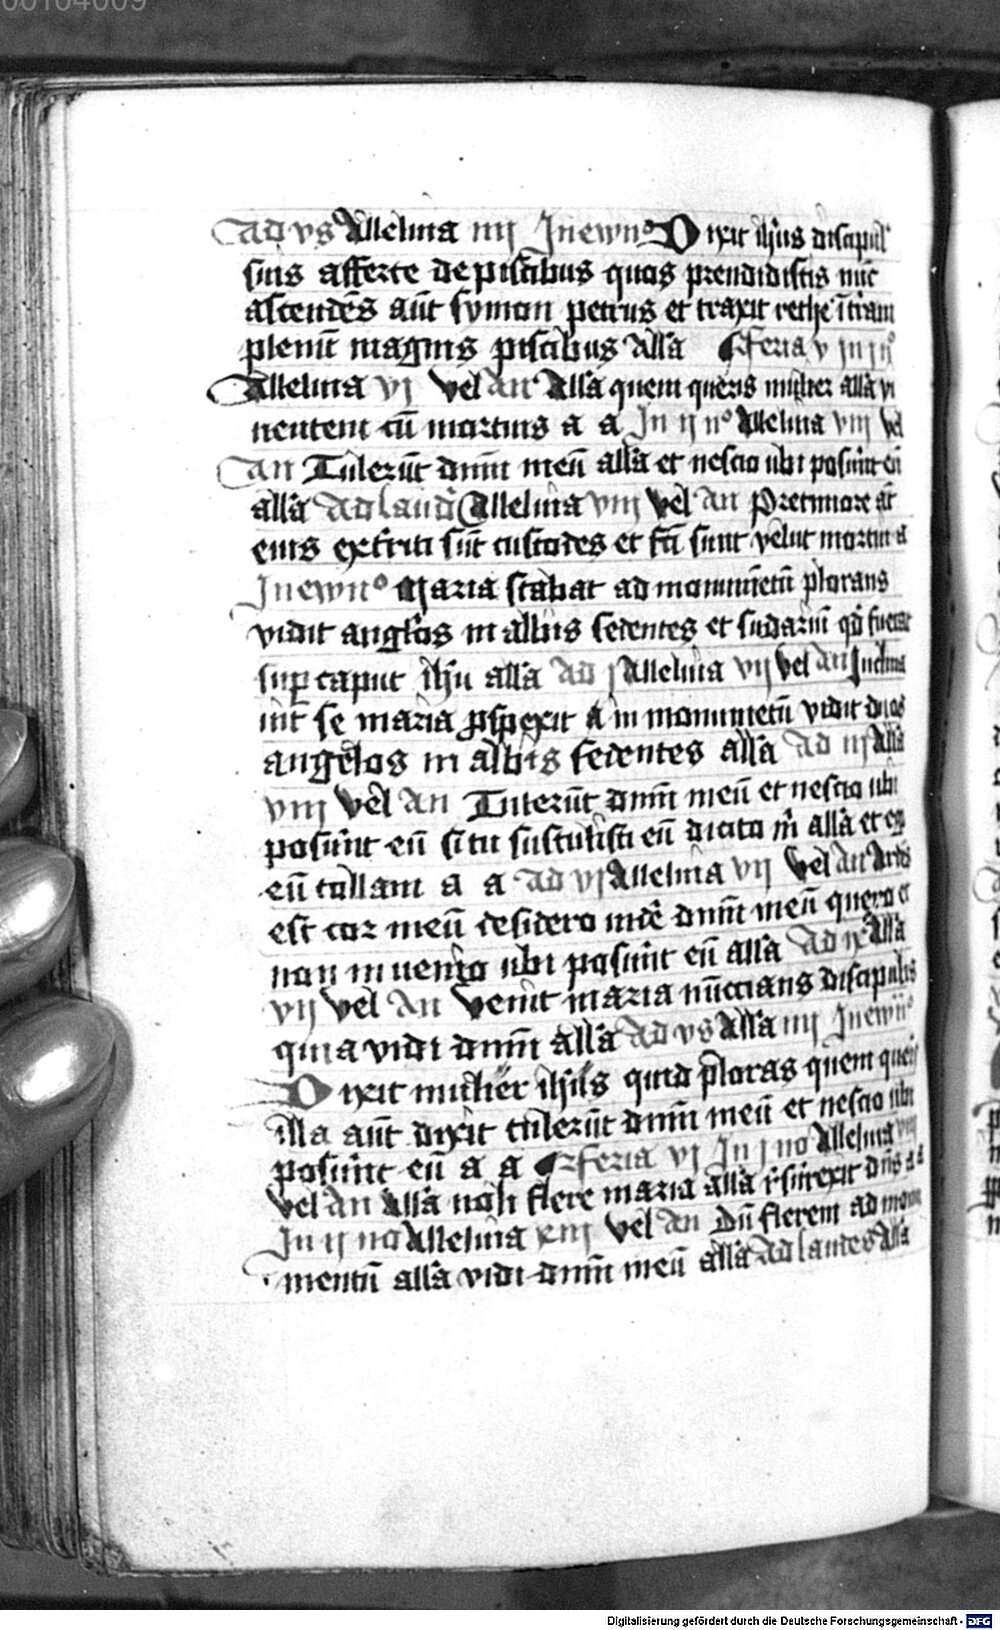 00104009
ad vs Alleluia iiij In ewnᵒ Dixit ih̄us discipul
suis afferte de piscibus quos prendidistis nūc
ascendēs aūt symon petrus et traxit rethe ī trām
plenū magnis piscibus all̄a feria v In j nᵒ
Alleluia vj vel an all̄a quem queris mulier all̄a vi
uentem cū mortuis a a In ij nᵒ Alleluia viij vel
an Tulerūt dn̄m meū all̄a et nescio ubi posūnt eū
all̄a ad laud Alleluia viij vel an Pre timore āt
eius exterriti sūt custodes et fc̄i sunt velut mortui a
In ewnᵒ Maria stabat ad monumētū plorans
vidit angl̄os in albis sedentes et sudariū qd̄ fuerat
suꝑ caput ih̄u all̄a ad j Alleluia vij vel an Inclina
uit se maria ꝓspexit in monumētū vidit duos
angēlos in albis sedentes all̄a ad iij all̄a
viij vel an Tulerūt dn̄m meū et nescio ubi
posūnt eū si tu sustulisti eū dicito m̄ all̄a et ego
eū tollam a a ad vj Alleluia vij vel an Ardēs
est cor meū desidero vidē dn̄m meū quero et
non inuenio ubi posūnt eū all̄a ad ix all̄a
vij vel an Venit maria nūccians discipulis
quia vidi dn̄m all̄a ad vs all̄a iiij In ewnᵒ
Dixit mulier ih̄us quid ploras quem queris
illa aūt dixit tulerūt dn̄m meū et nescio ubi
posūnt eū a a feria vj In j no Alleluia viij
vel an all̄a noli flere maria all̄a rsurexit dn̄s a a
In ij no Alleluia viij vel an Dū flerem ad monu
mentū all̄a vidi dn̄m meū all̄a ad laudes all̄a
Digitalisierung gefördert durch die Deutsche Forschungsgemeinschaft - DFG